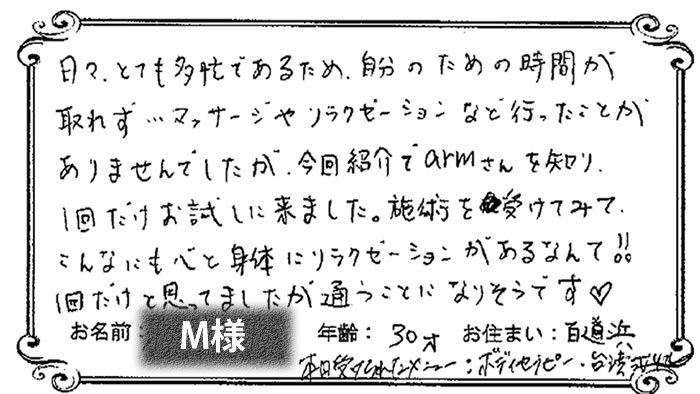 日々、とても多忙であるため、自分のための時間が
取れず…マッサージやリラクゼーションなど行ったことが
ありませんでしたが、今回紹介でarmさんを知り、
1回だけお試しに来ました。施術を受けてみて、
こんなにも心と身体にリラクゼーションがあるなんて!!
1回だけと思ってましたが通うことになりそうです♡
お名前： M様 年齢： 30才 お住まい：百道浜
本日受けられたメニュー：ボディセラピー・台湾式